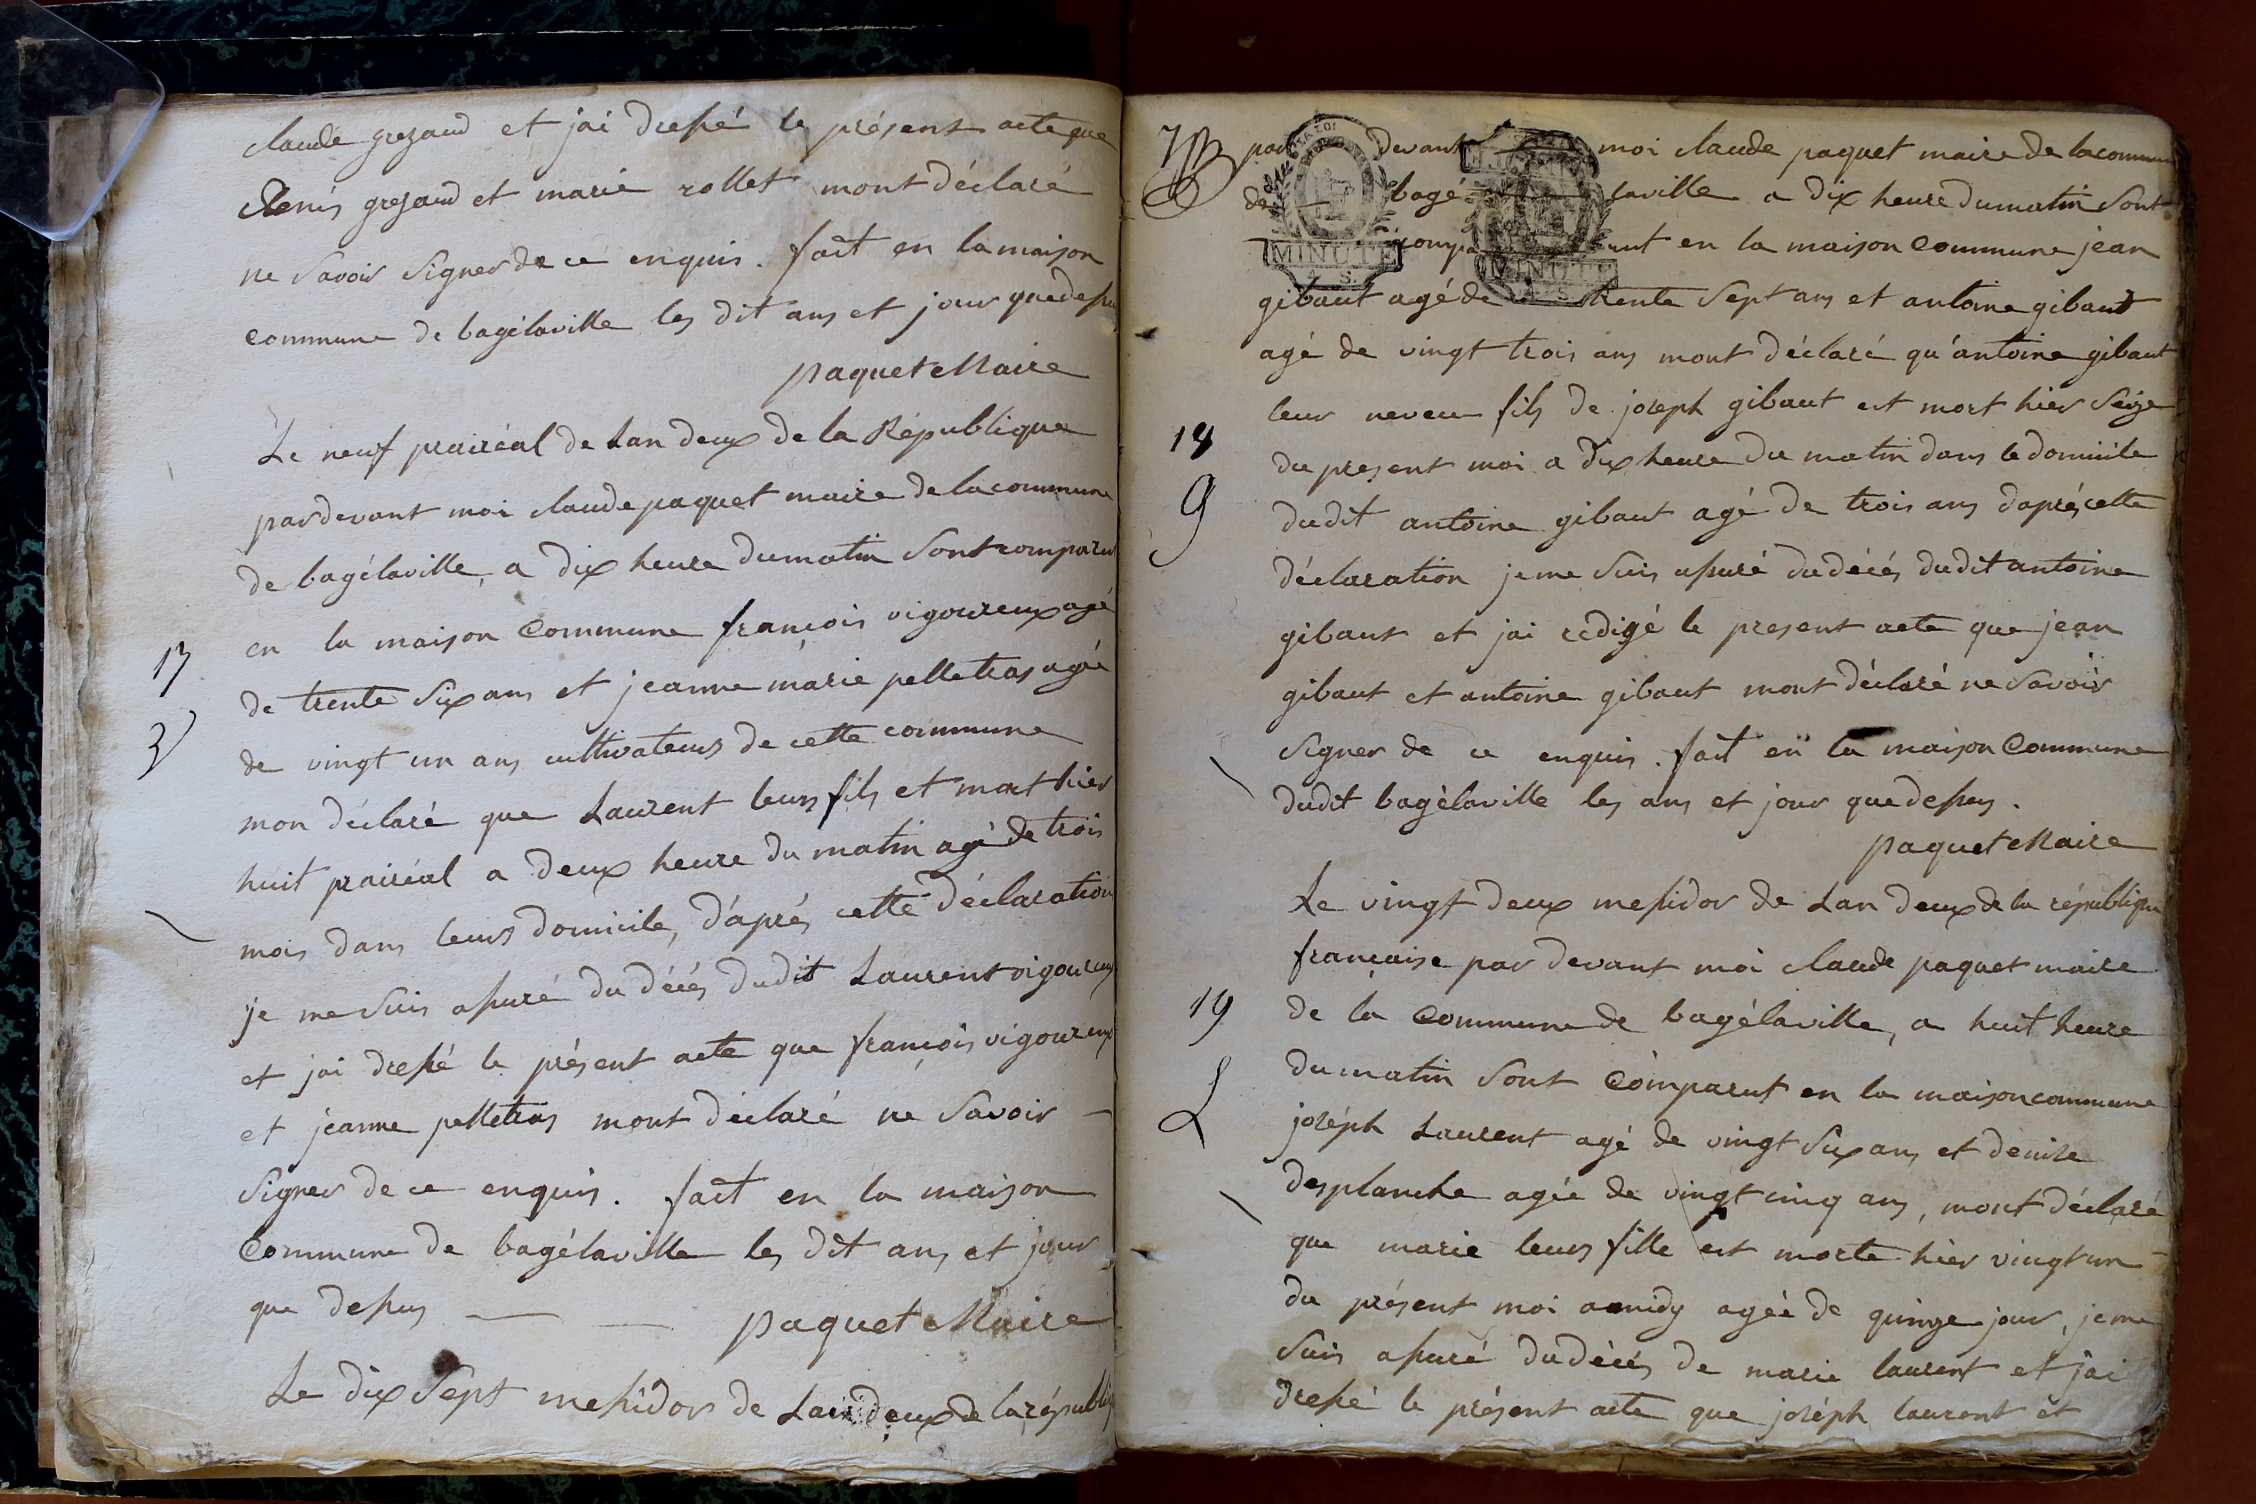 claude grezaud et jai dressé le présent acte que
denis grezaud et marie rollet mont déclaré
ne savoir signer de ce enquis. fait en la maison
commune de bagélaville les dit ans et jour que dessu
paquet Maire
Le neuf prairéal de Lan deux de la République
pardevant moi claude paquet maire de la commune
de bagélaville, a dix heure du matin sont comparu
en la maison Commune françois vigoureux agé
17
de trente six ans et jeanne marie pelletras agée
de vingt un ans cultivateurs de cette commune
mon déclaré que Laurent leurs fils et mort hier
huit prairéal a deux heure du matin agé de trois
mois dans leurs domicile, d'aprés cette déclaration
je me suis assuré du décés dudit Laurent vigoureux
et jai dressé le présent acte que françois vigoureux
et jeanne pelletras mont déclaré ne savoir
signer de ce enquis. fait en la maison
Commune de bagélaville les dit ans et jour
que dessus paquet Maire
Le dix sept messidor de Lan deux de la républi
par devant moi claude paquet maire de la commun
de bagé laville a dix heure du matin sont
compa rut en la maison commune jean
MINUTE
MINUTE
gibaut agé de trente sept ans et antoine gibaut
agé de vingt trois ans mont déclaré qu'antoine gibaut
leur neveu fils de joseph gibaut est mort hier seize
18
du present moi a dix heure du matin dans le domicile
G
dudit antoine gibaut agé de trois ans daprés cette
déclaration je me suis assuré du décés dudit antoine
gibaut et jai redigé le present acte que jean
gibaut et antoine gibaut mont déclaré ne savoir
signer de ce enquis. fait en la maison Commune
dudit bagélaville les ans et jour que dessus.
paquet Maire
Le vingt deux messidor de Lan deux de la républiqu
française par devant moi claude paquet maire
19
de la commune de bagélaville, a huit heure
du matin sont comparut en la maison commune
L
joséph Laurent agé de vingt six ans et denise
desplanche agée de vingt cinq ans, mont déclaré
que marie leurs fille est morte hier vingt un
du présent moi a midy agée de quinze jour, je me
suis assuré du décés de marie laurent et jai
dressé le présent acte que joséph laurent et